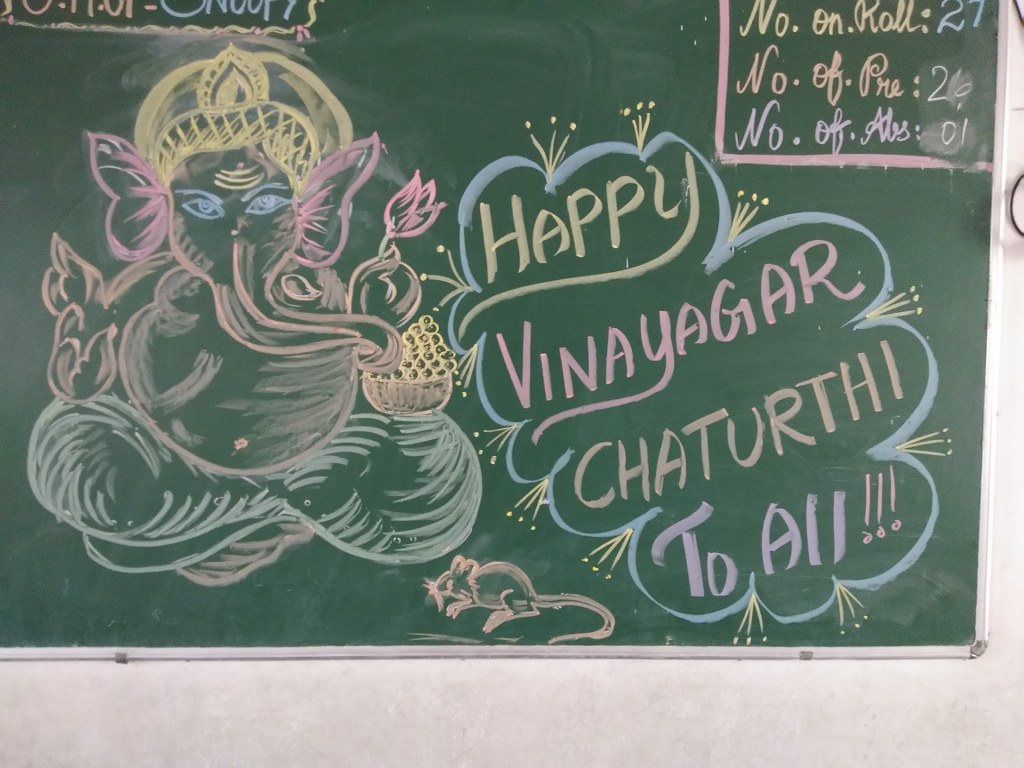 SNOOPY
No. on. Roll: 27
No. of. Pre: 26
No. of. Abs: 01
HAPPY
VINAYAGAR
CHATURTHI
To All!!!